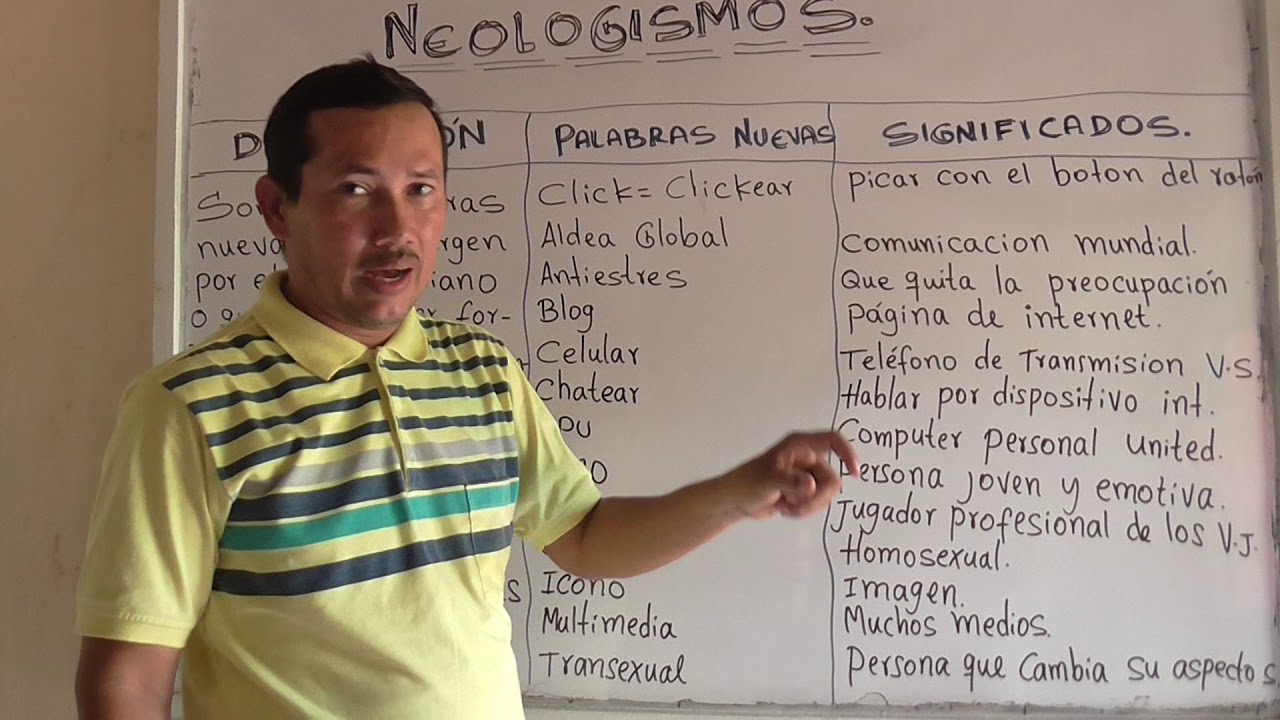 NEOLOGISMOS.
PALABRAS NUEVAS SIGNIFICADOS.
nueva
por el
o
for-
Click = Clickear picar con el boton del ratón
Aldea Global comunicacion mundial.
Antiestres Que quita la preocupación
Blog página de internet.
Celular Teléfono de Transmision V.S.
Chatear Hablar por dispositivo int.
Computer personal united.
Persona joven y emotiva.
Jugador profesional de los V.J.
Homosexual.
Icono Imagen.
Multimedia Muchos medios.
Transexual persona que cambia su aspecto s